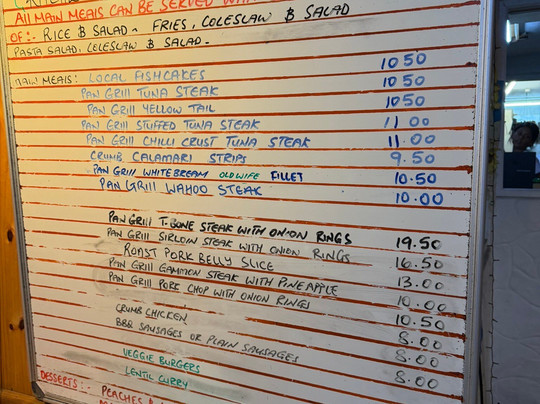 All MAIN MEAlS CAN BE SERVED
OF:- RICE & SALAD - FRIES, COLESLAW & SALAD
PASTA SALAD, COLESLAW & SALAD -
MAIN MEAlS: LOCAL FISHCAKES 10 50
PAN GRIll TUNA STEAK 10 50
PAN GRIll YELLOW TAIL 10 50
PAN GRIll STUFFED TUNA STEAK 11 00
PAN GRIll CHILLI CRUST TUNA STEAK 11.00
CRUMB CALAMARI STRIPS 9.50
PAN GRIll WHITEBREAM OLDWIFE FILLET 10.50
PAN GRIll WAHOO STEAK 10.00
PAN GRIll T-BONE STEAK WITH ONION RINGS 19.50
PAN GRIll SIRLOIN STEAK WITH ONION RINGS 16.50
ROAST PORK BELLY SLICE 13.00
PAN GRIll GAMMON STEAK WITH PINEAPPLE 10.00
PAN GRIll PORK CHOP WITH ONION RINGS 10.50
CRUMB CHICKEN 8.00
BBQ SAUSAGES OR PLAIN SAUSAGES 8.00
VEGGIE BURGERS 8.00
LENTIL CURRY
DESSERTS:- PEACHES &